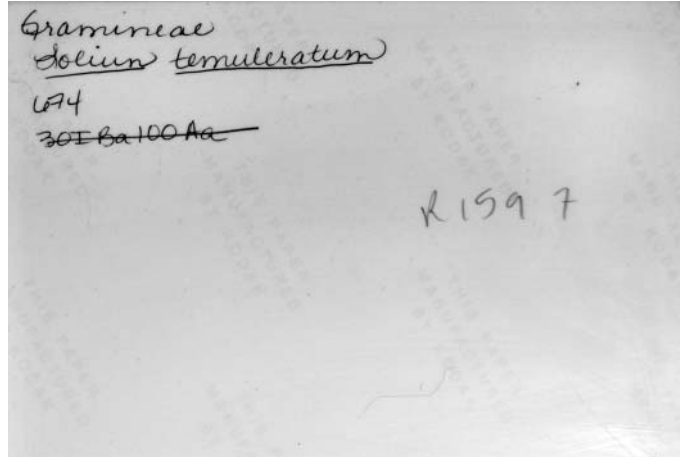 Gramineae
Lolium temuleratum
674
30I Ba100 Aa
R1597
THIS PAPER
MANUFACTURED
BY KODAK